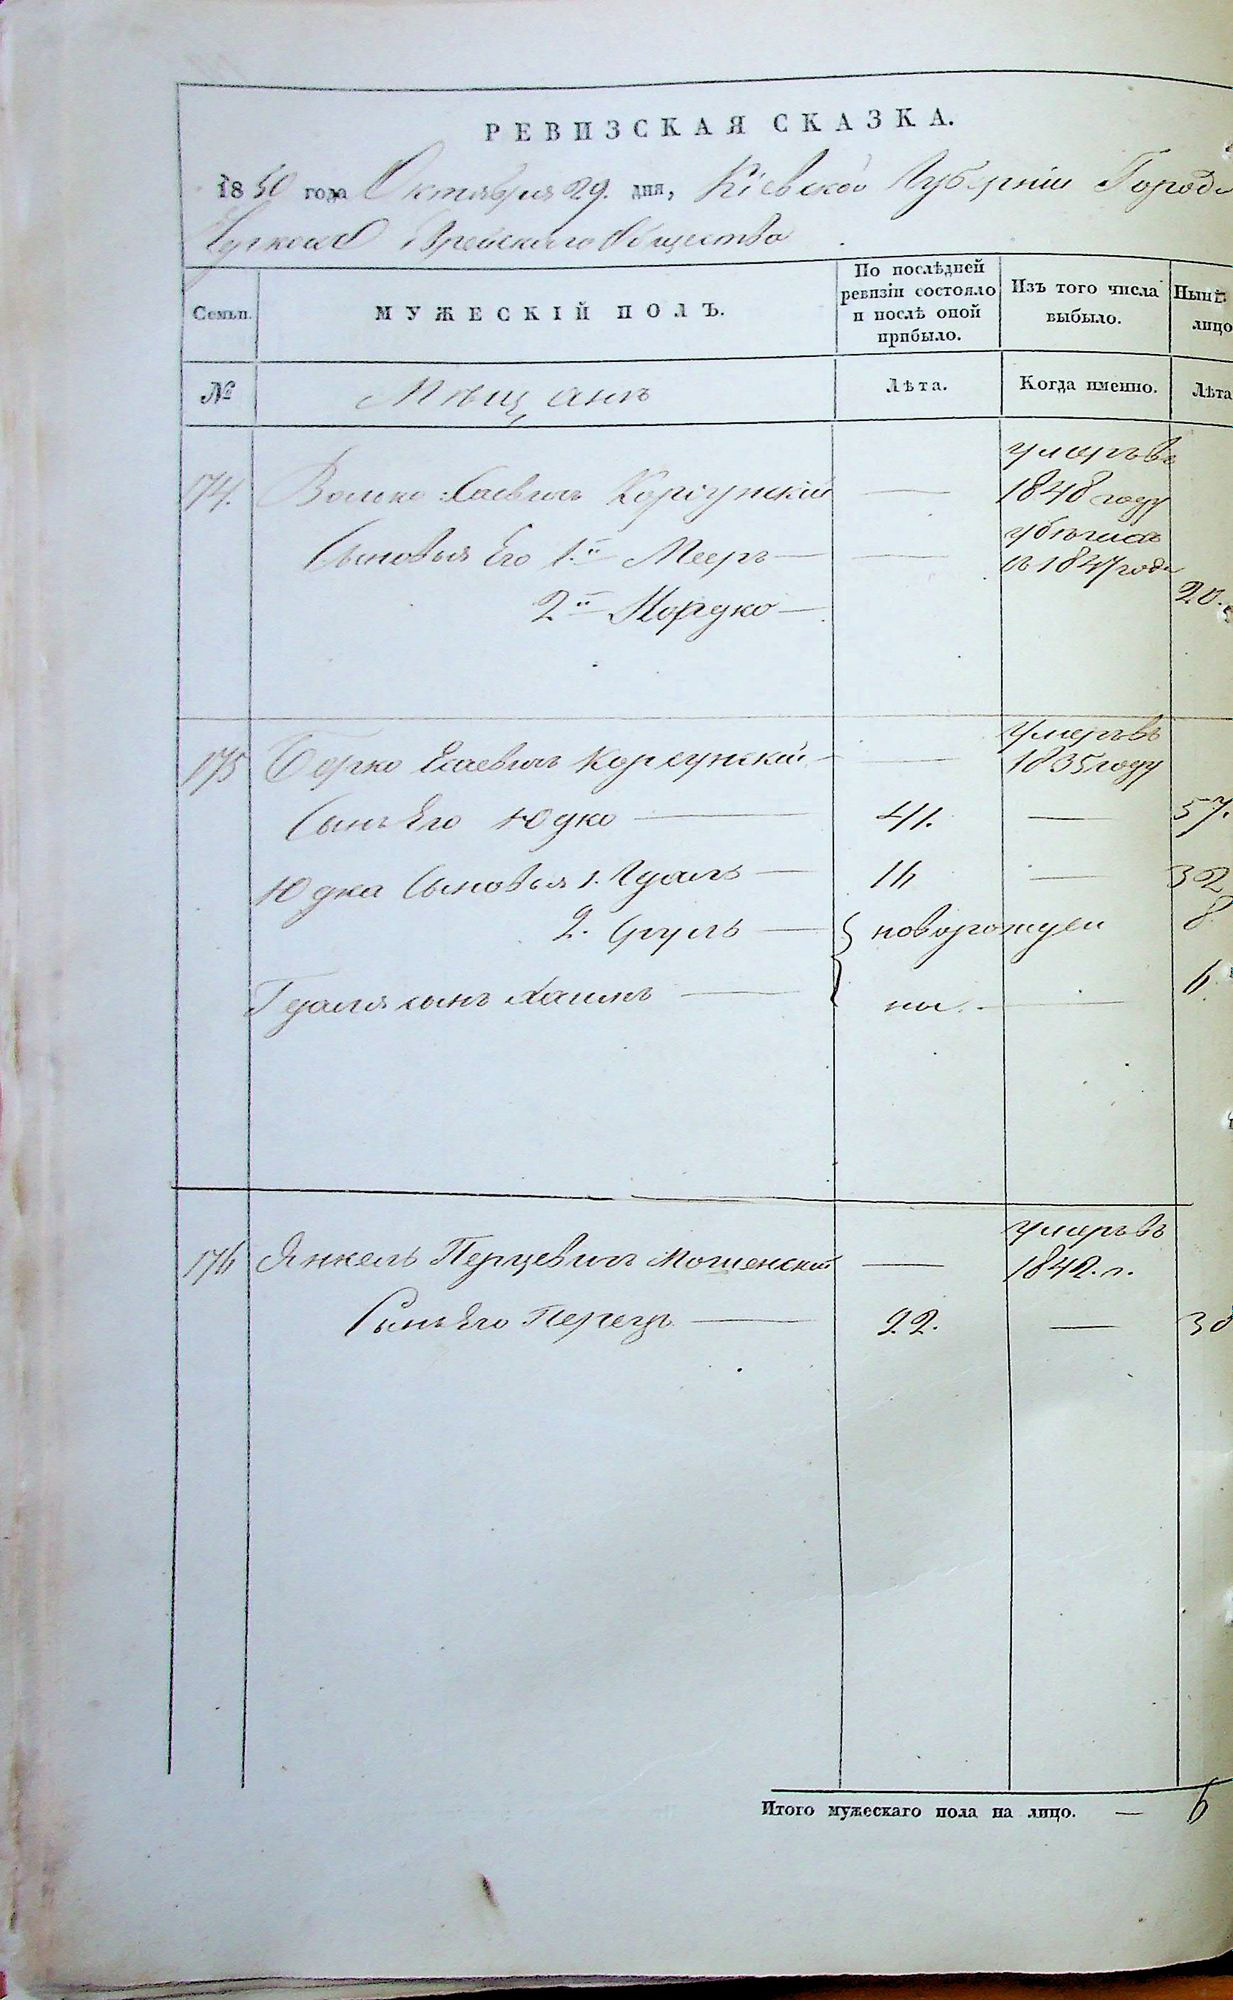 РЕВИЗСКАЯ СКАЗКА.
1850 года Октября 29. дня, Кіевской Губерніи Города
Еврейскаго Общества
Семьи.
МУЖЕСКІЙ ПОЛЪ.
По послѣдней
ревизіи состояло
и послѣ оной
прибыло.
Изъ того числа
выбыло.
Нынѣ
лицо
№
Мѣщанъ
Лѣта.
Когда именно.
Лѣта
умеръ въ
174. Волько Хаевичъ Корсунскій — 1848 году
убѣгись
Сыновья Его 1й Мееръ — — въ 1847 года
2й Мордко — 20.
умеръ въ
175 Берко Хаевичъ Корсунскій — — 1835 году
Сынъ Его Юдко — 41. — 57.
Юдка Сыновья 1. Гдаль — 16 — 32
2. Сруль — новорожден 8
Гдаля сынъ Хаимъ — ны. — 6
умеръ въ
176 Янкель Перцевичъ Мошенскій — 1842. г.
Сынъ Его Перецъ — 22. — 38
Итого мужескаго пола на лицо. — 6